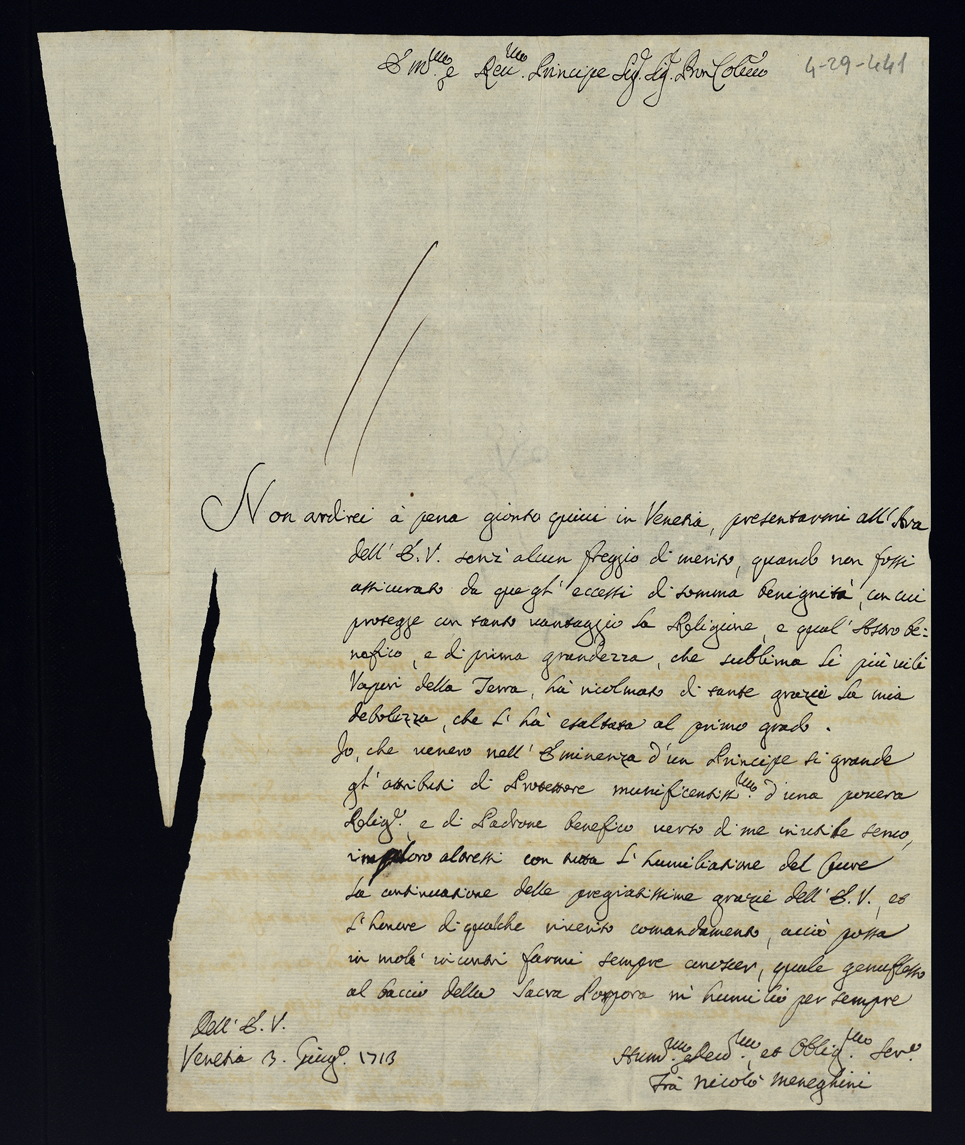 Em.mo e Reu.mo Principe Sig.r Sig.r Pron Col.mo
4-29-441
Non ardirei à pena gionto quiui in Venetia, presentarmi all' Ara
dell' E.V. senz' alcun freggio di merito, quando non fossi
assicurato da quegl' eccessi di somma benignità, con cui
protegge con tanto vantaggio la Religione, e qual' Astro be:
nefico, e di prima grandezza, che sublima li più vili
Vapori della Terra, hà ricolmato di tante grazie la mia
debolezza, che l' hà esaltata al primo grado.
Io, che venero nell' Eminenza d'un Principe si grande
gl' attributi di Protettore munificentiss.mo d'una povera
Relig.e, e di Padrone benefico verso di me inutile seruo,
imploro altresi con tutta l' humiliatione del Cuore
la continuatione delle pregiatissime grazie dell' E.V., et
l' honore di qualche riuerito comandamento, acciò possa
in molt' incontri farmi sempre conoscer, quale genuflesso
al baccio della Sacra Porpora m' humilio per sempre
Dell' E.V.
Venetia 3. Giug.o 1713
Hum.mo e Deu.mo, et Oblig.mo Ser.e
Frà Nicolò Meneghini